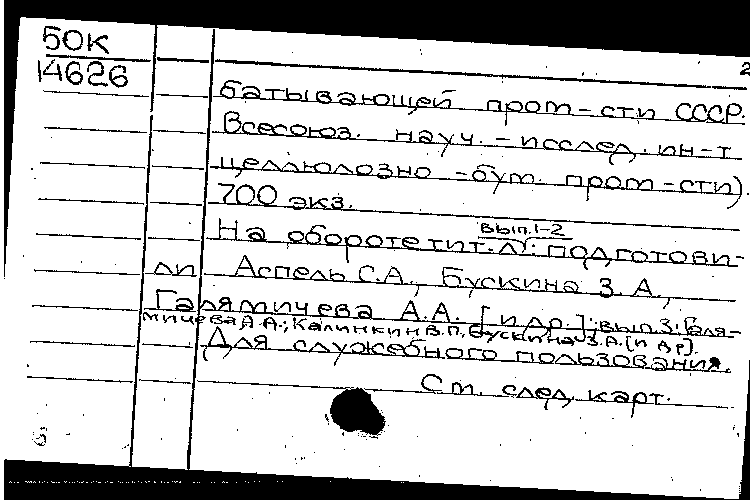 50К
14626
2
батывающей пром-сти СССР.
Всесоюз. науч.-исслед. ин-т
целлюлозно-бум. пром-сти).
700 экз.
вып.1-2
На обороте тит. л.: подготови-
ли Аспель С.А., Бускина З.А,
Галямичева А.А. [и др.]; вып.3: Галя-
мичева А.А.; Калинкин В.П, Бускина З.А. [и др].
Для служебного пользования.
См. след. карт.